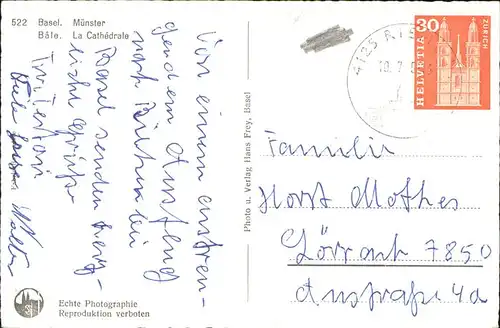 522 Basel. Münster
Bâle. La Cathédrale
Von einem anstren-
gendem Ausflug
nach Riehen bei
Basel senden herz-
liche Grüße
Eure
Walter
Echte Photographie
Reproduktion verboten
Photo u. Verlag Hans Frey, Basel
4125 RI
30
HELVETIA
ZÜRICH
Familie
Horst Mothes
Lörrach 7850
Austraße 4a